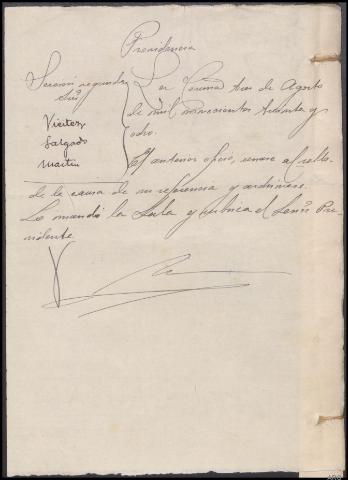 Providencia
Sección segunda
Sres
Vieitez
Salgado
Martin
La Coruña tres de Agosto
de mil novecientos treinta y
ocho.
El anterior oficio, unase al rollo
de la causa de su referencia y archivese.
Lo mandó la Sala y rubrica el Señor Pre-
sidente